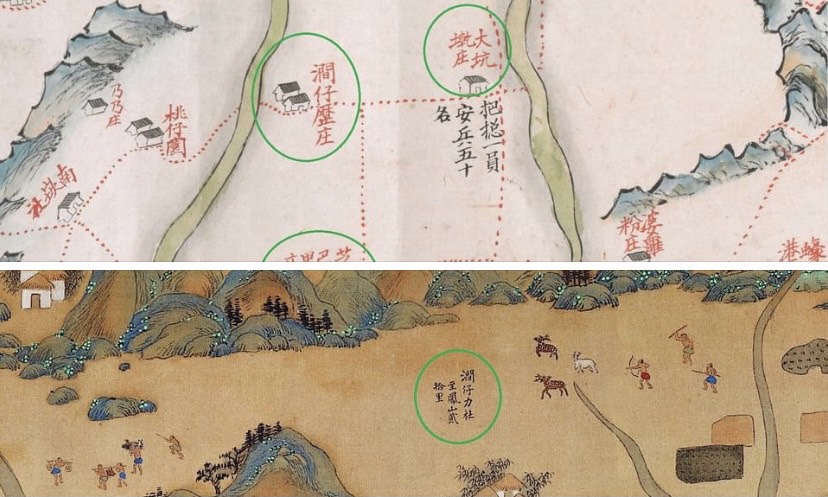 大坑
庄
把捴一員
安兵六五十
名
澗仔歷庄
桃仔園
乃乃庄
南崁社
婆羅
粉庄
港
澗仔力社
至鳳山貳
拾里